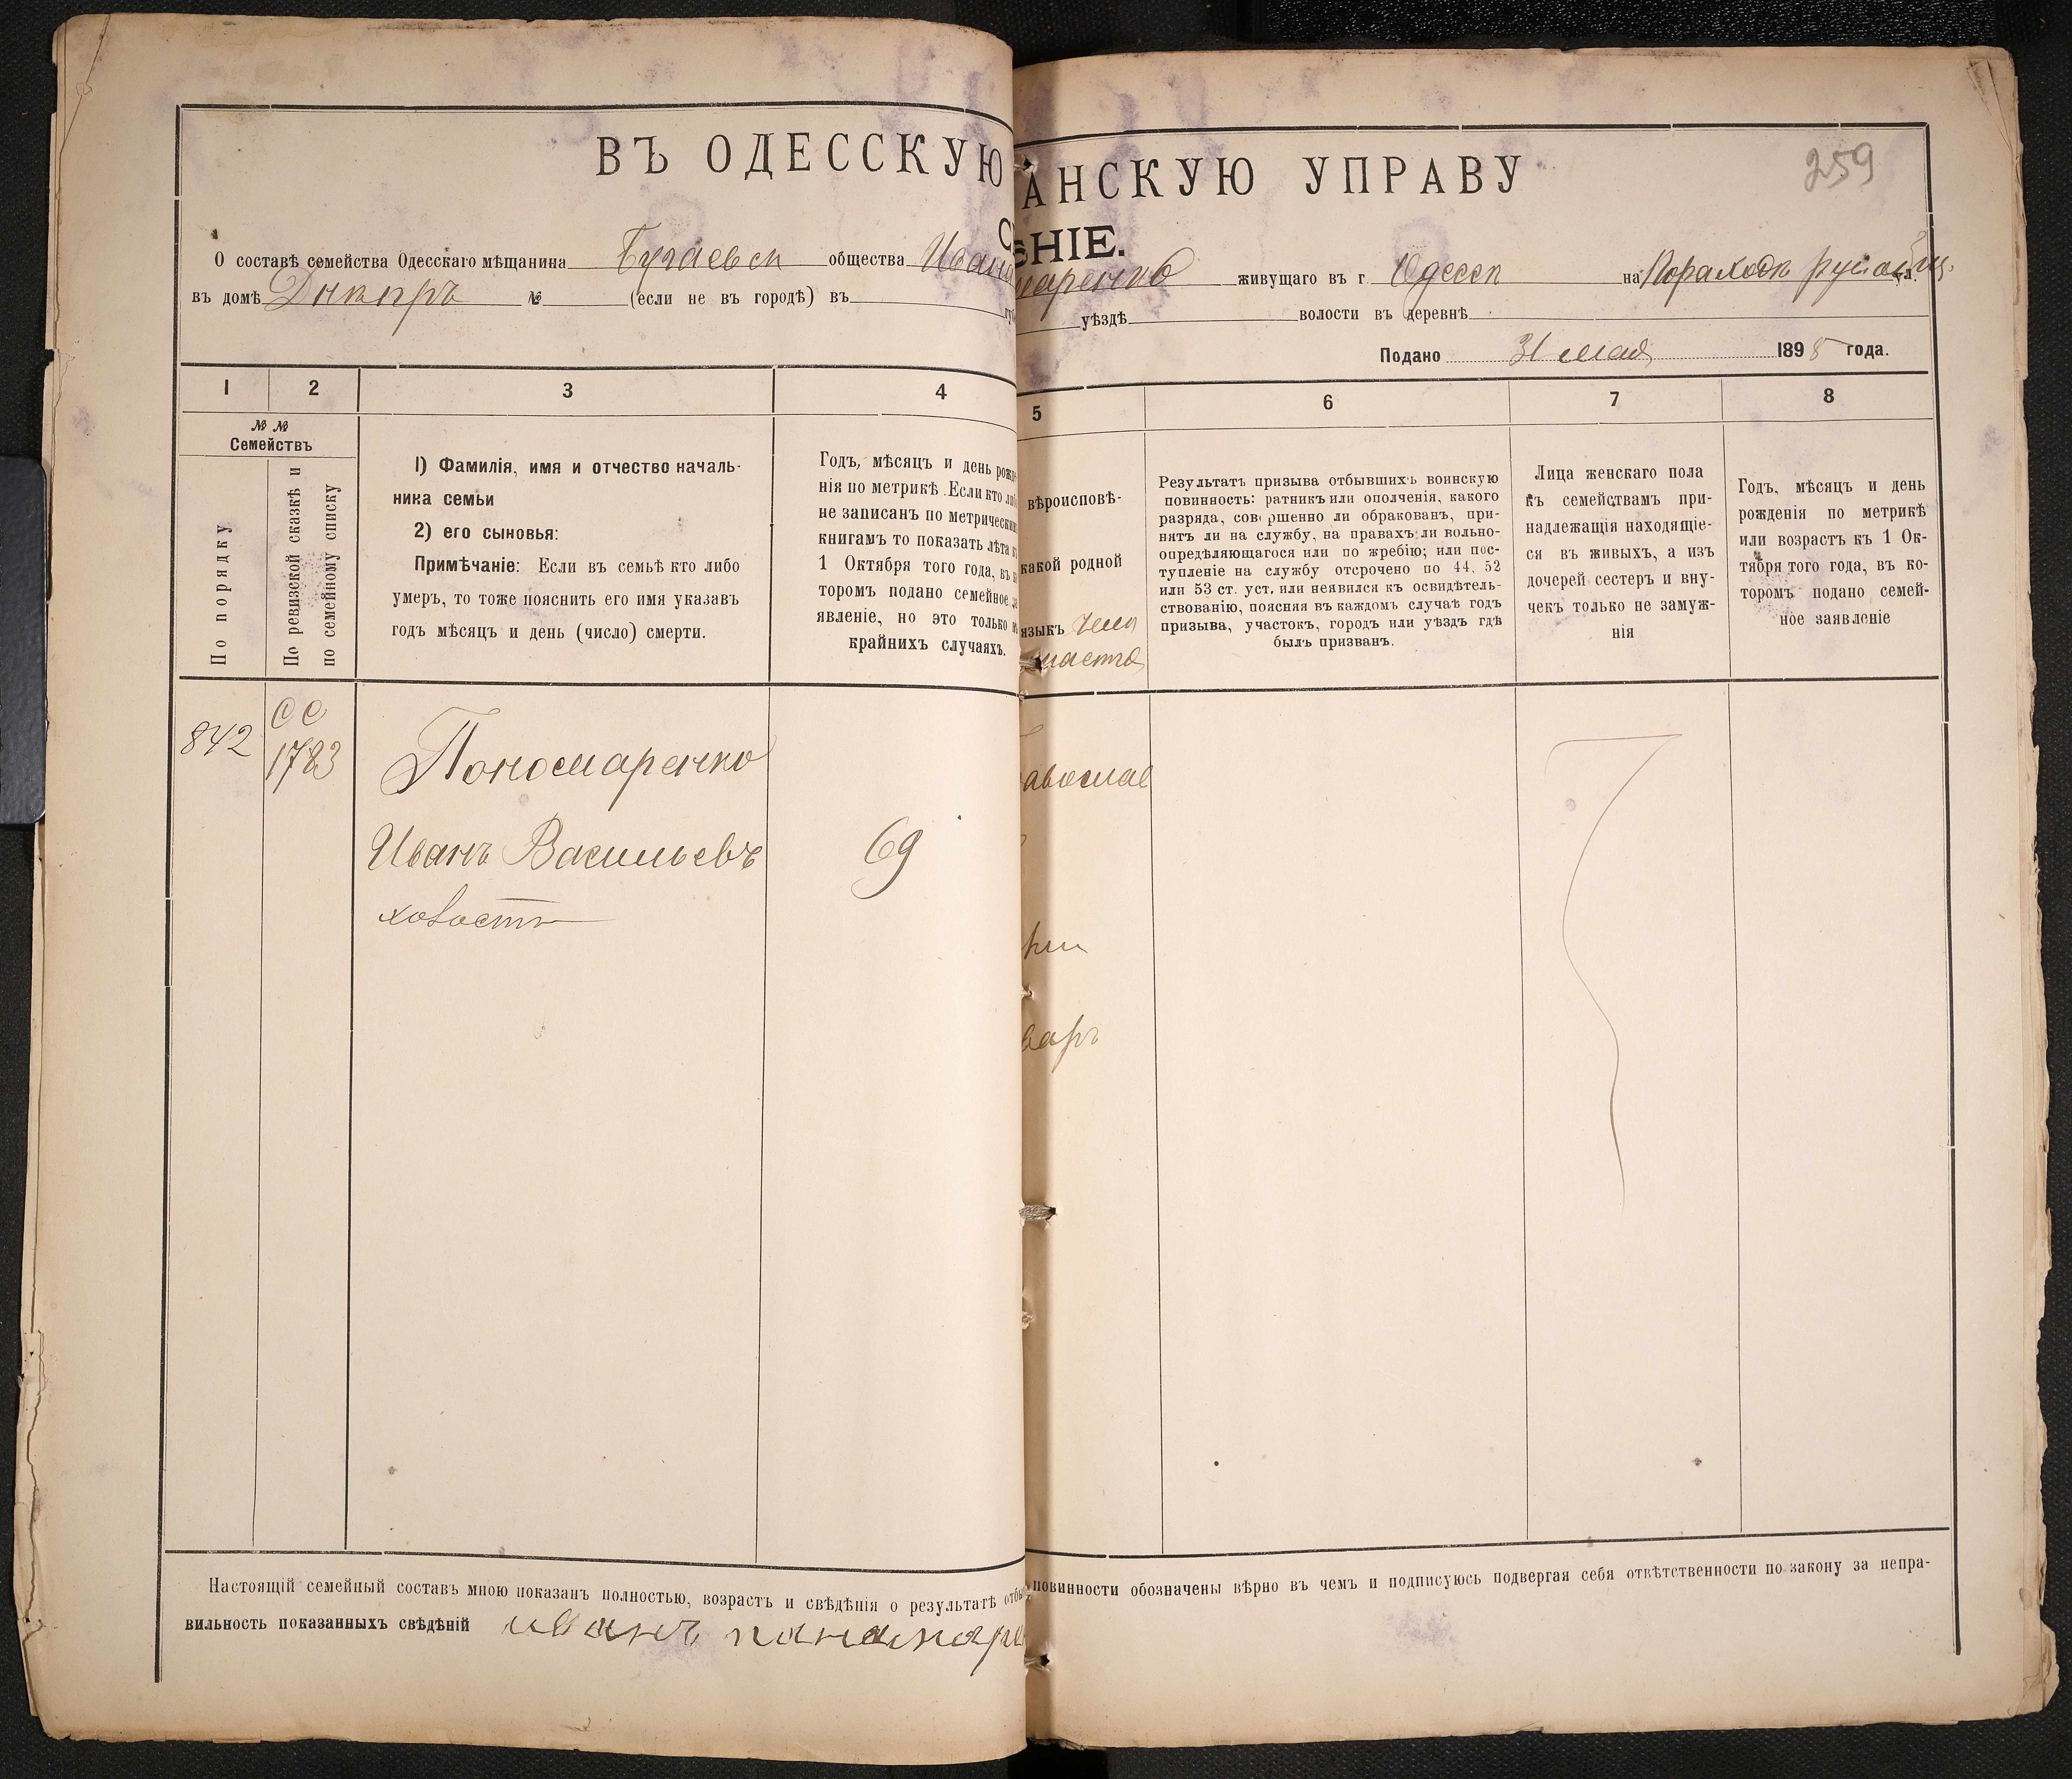 ВЪ ОДЕССКУЮ АНСКУЮ УПРАВУ
259
ЕНІЕ.
О составѣ семейства Одесскаго мѣщанина Бугаевск общества Ивана маренко живущаго въ г. Одессѣ на Пораходѣ ул.
въ домѣ Днѣпръ № (если не въ городѣ) въ уѣздѣ волости въ деревнѣ
Подано 31 мая 1898 года.
1 2 3 4 5 6 7 8
№ № Семействъ
По порядку
По ревизской сказкѣ и
по семейному списку
1) Фамилія, имя и отчество началь-
ника семьи
2) его сыновья:
Примѣчаніе: Если въ семьѣ кто либо
умеръ, то тоже пояснить его имя указавъ
годъ мѣсяцъ и день (число) смерти.
Годъ, мѣсяцъ и день рожде
нія по метрикѣ. Если кто либо
не записанъ по метрическимъ
книгамъ то показать лѣта къ
1 Октября того года, въ ко
торомъ подано семейное за
явленіе, но это только въ
крайнихъ случаяхъ.
вѣроисповѣ-
какой родной
языкъ
Результатъ призыва отбывшихъ воинскую
повинность: ратникъ или ополченія, какого
разряда, совершенно ли обракованъ, при-
нятъ ли на службу, на правахъ ли вольно-
опредѣляющагося или по жребію; или пос-
тупленіе на службу отсрочено по 44, 52
или 53 ст. уст. или неявился къ освидѣтель-
ствованію, поясняя въ каждомъ случаѣ годъ
призыва, участокъ, городъ или уѣздъ гдѣ
былъ призванъ.
Лица женскаго пола
къ семействамъ при-
надлежащія находящіе-
ся въ живыхъ, а изъ
дочерей сестеръ и вну-
чекъ только не замуж-
нія
Годъ, мѣсяцъ и день
рожденія по метрикѣ
или возрастъ къ 1 Ок-
тября того года, въ ко-
торомъ подано семей-
ное заявленіе
842
СС
1783
Пономаренко
авослав
Иванъ Васильевъ
69
холостъ
Настоящій семейный составъ мною показанъ полностью, возрастъ и свѣдѣнія о результатѣ отбы повинности обозначены вѣрно въ чемъ и подписуюсь подвергая себя отвѣтственности по закону за непра-
вильность показанныхъ свѣдѣній иванъ панамаре